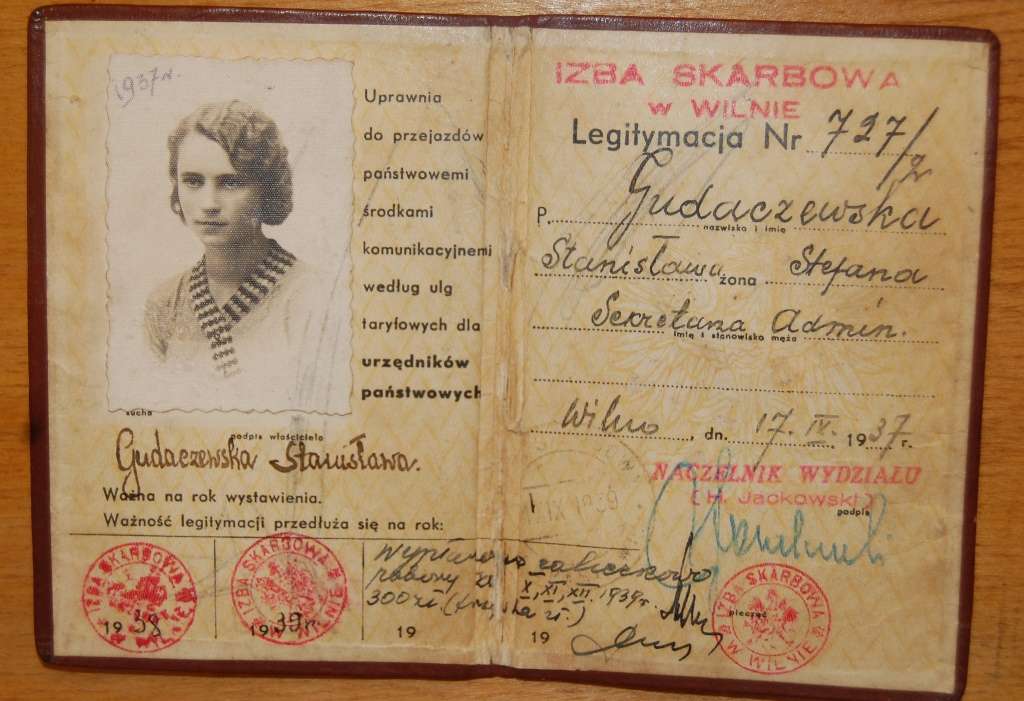 1937 r.
Uprawnia
do przejazdów
państwowemi
środkami
komunikacyjnemi
według ulg
taryfowych dla
urzędników
państwowych
sucha
podpis właściciela
Gudaczewska Stanisława.
Ważna na rok wystawienia.
Ważność legitymacji przedłuża się na rok:
IZBA SKARBOWA W WILNIE
19 38
IZBA SKARBOWA W WILNIE
19 39 r.
19
IZBA SKARBOWA
W WILNIE
Legitymacja Nr 727/
P. Gudaczewska
nazwisko i imię
Stanisława żona Stefana
Sekretarza Admin.
imię i stanowisko męża
Wilno, dn. 17. IV. 1937 r.
NACZELNIK WYDZIAŁU
(H. Jackowski)
podpis
IX 1939
Wypłacono zaliczkowo
pobory za X, XI, XII. 1939 r.
300 zł
19
pieczęć
IZBA SKARBOWA W WILNIE